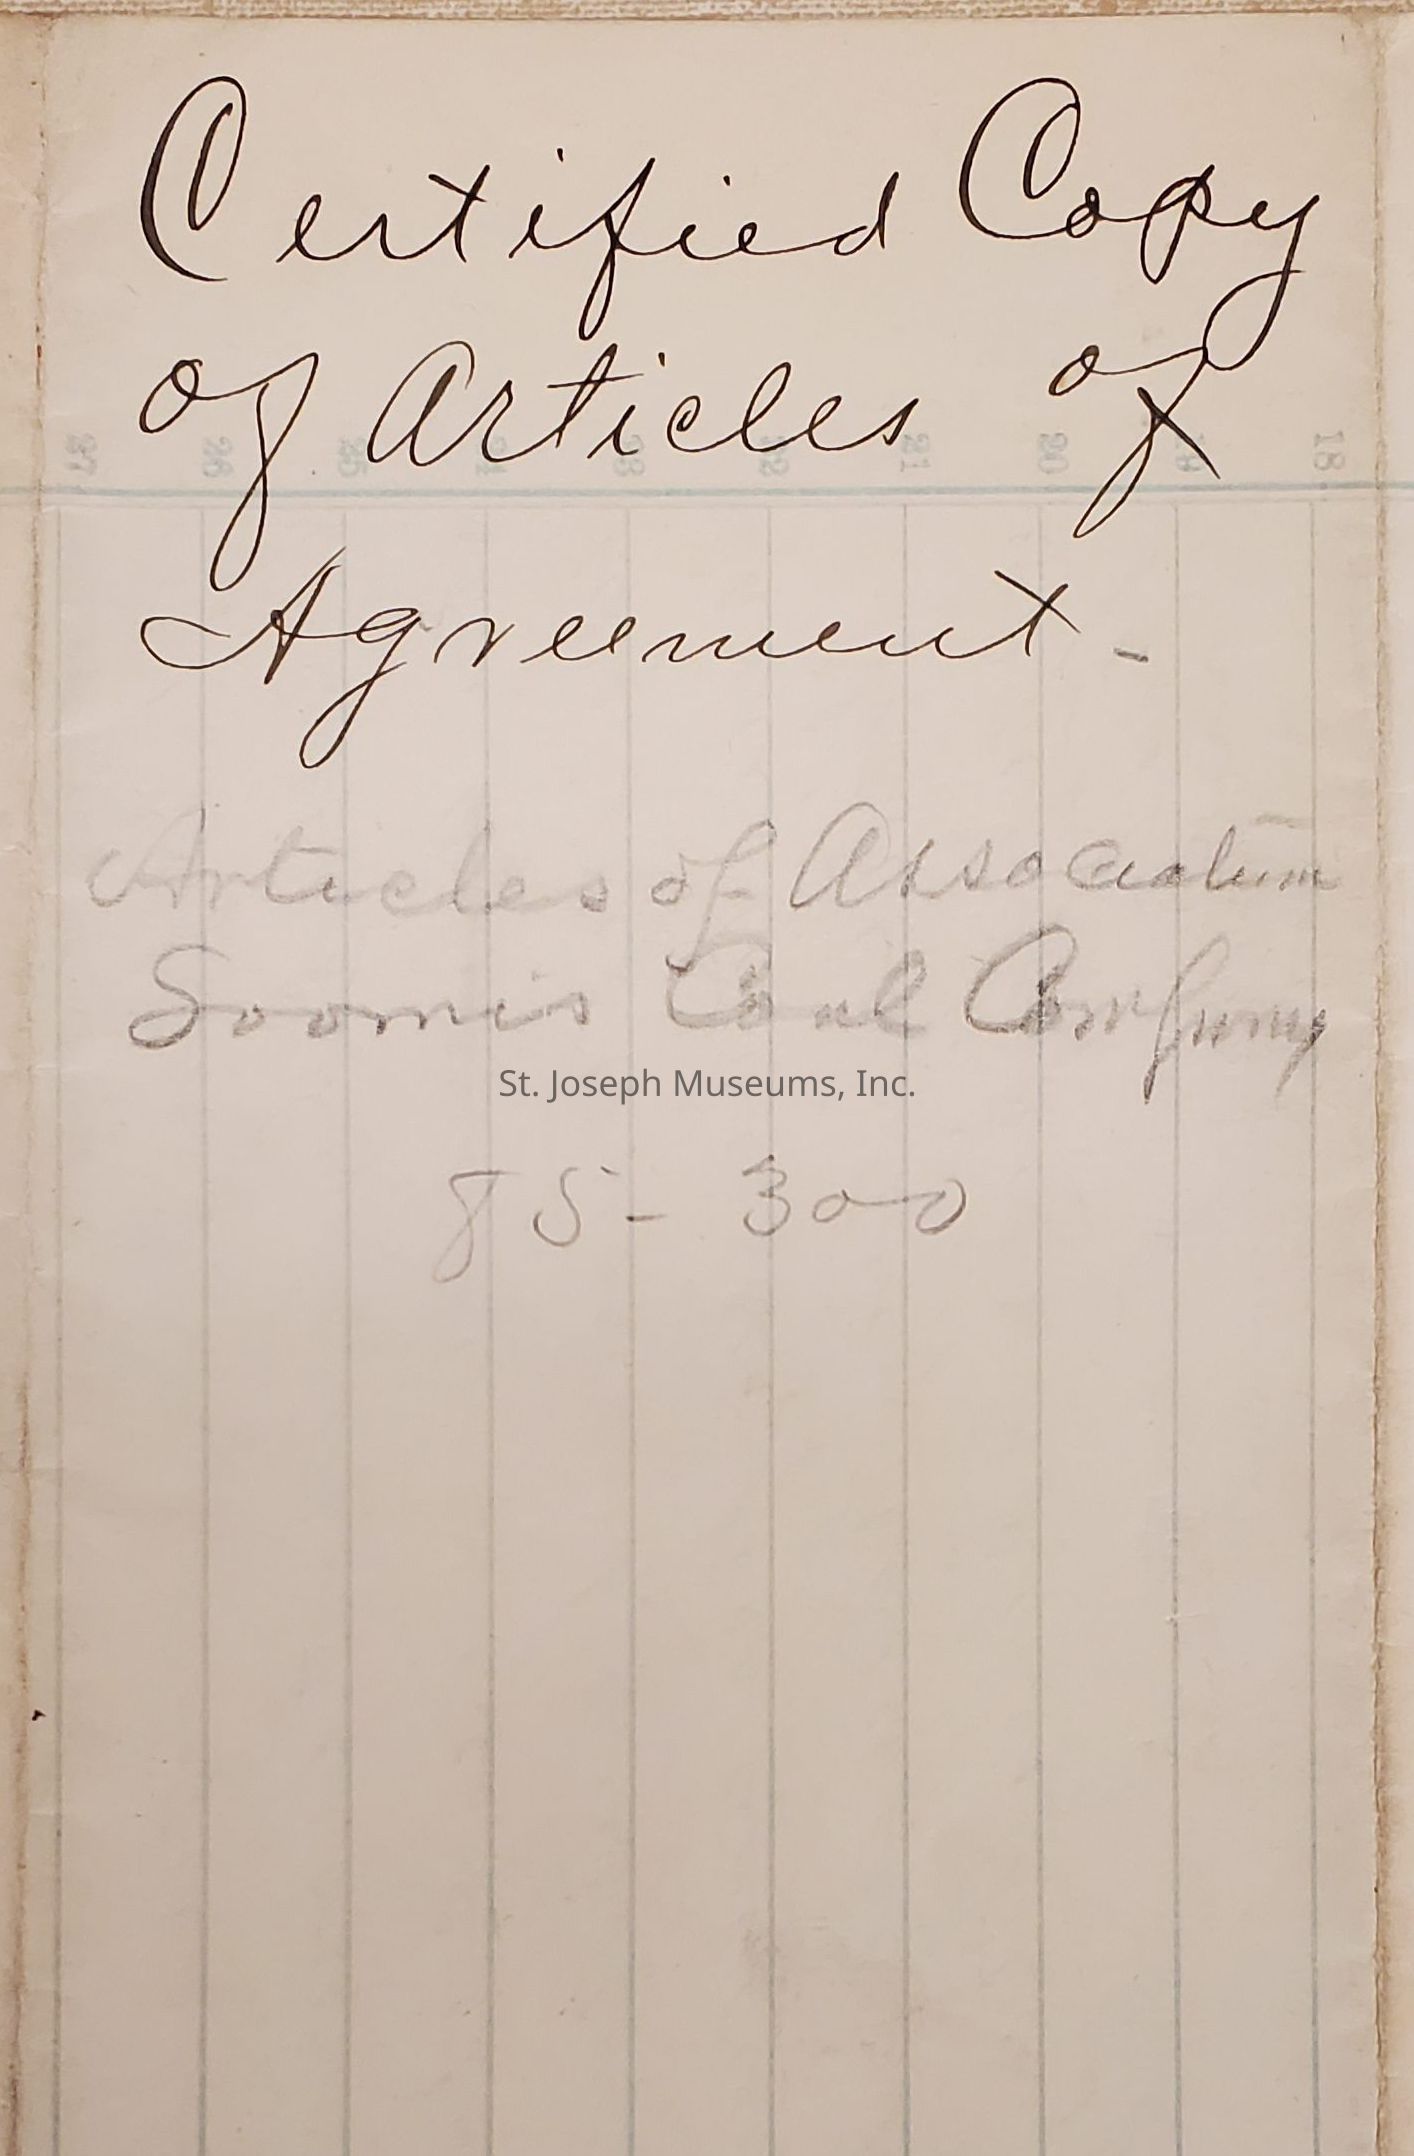 Certified Copy
of Articles of
Agreement -
Articles of Association
Loomis Coal Company
St. Joseph Museums, Inc.
85- 300